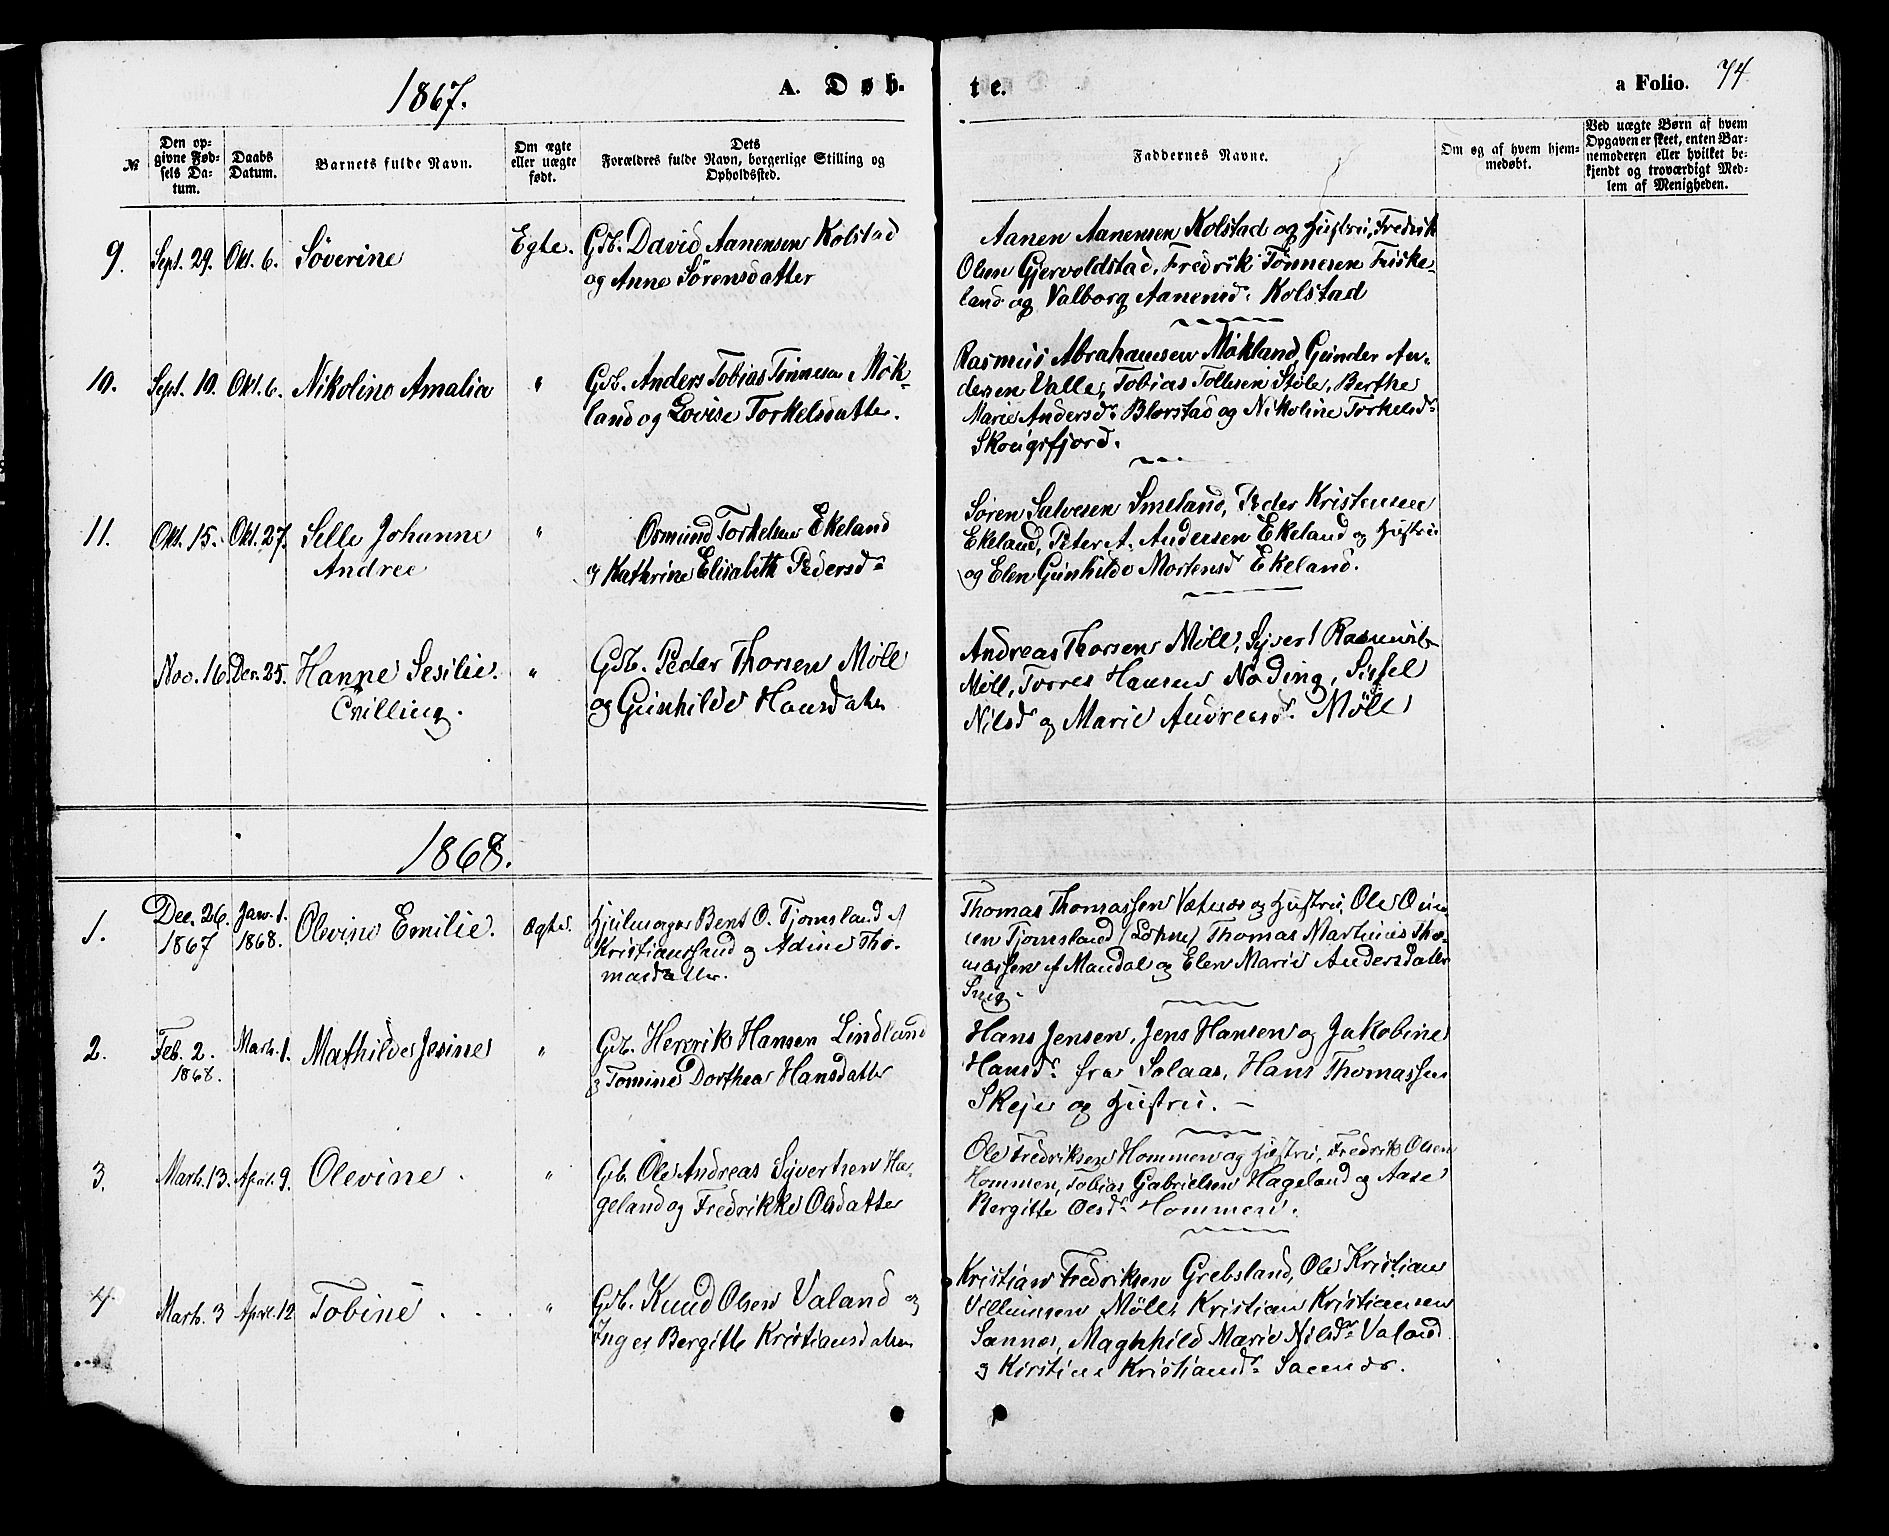 1867.
A. Døbte.
a Folio. 74
No
Den opgivne Fødsels Datum.
Daabs Datum.
Barnets fulde Navn.
Om ægte eller uægte født.
Dets Forældres fulde Navn, borgerlige Stilling og Opholdssted.
Faddernes Navne.
Om og af hvem hjemmedøbt.
Ved uægte Børn af hvem Opgaven er skeet, enten Barnemoderen eller hvilket bekjendt og troværdigt Medlem af Menigheden.
9. Sept. 29. Okt. 6. Söverine Egte.
Gdb. David Aanensen Kolstad
og Anne Sörensdatter
Aanen Aanensen Kolstad og Hustru, Fredrik
Olsen Gjervoldstad, Fredrik Tönnesen Fuske-
land og Valborg Aanensd. Kolstad
10. Sept. 10. Okt. 6. Nikoline Amalia "
Gdb. Anders Tobias Tönnesen Møk-
land og Lovise Torkelsdatter.
Rasmus Abrahamsen Møkland, Gunder An-
dersen Valle, Tobias Tollesen Støle, Berthe
Marie Andersdr. Blørstad og Nikoline Torkelsdr.
Skougsfjord.
11. Okt. 15. Okt. 27. Selle Johanne
Andree "
Osmund Torkelsen Ekeland
og Kathrine Elisabeth Pedersdr.
Søren Salvesen Smeland, Peder Kristensen
Ekeland, Peter A. Andersen Ekeland og Hustru
og Elen Gunhilde Mortensd. Ekeland.
Nov. 16. Dec. 25. Hanne Sesilie.
Tvilling. "
Gdb. Peder Thorsen Möll
og Gunhilde Hansdatter
Andreas Thorsen Möll, Syvert Rasmus
Möll, Torres Hansen Noding, Sissel
Nilsd. og Marie Andreasd. Möll
1868.
1. Dec. 26. 1867 Jan. 1. 1868. Olevine Emilie. Ægte.
Hjulmager Bent O. Tjomsland af
Kristianssand og Adine Tho-
masdatter.
Thomas Thomassen Vatnes og Hustru, Ole
Tjomsland (Lohne) Thomas Martinus Tho-
massen af Mandal og Elen Marie Andersdatter
Snig.
2. Feb. 2. 1868. Marts. 1. Mathilde Jesine "
Gdb. Henrik Hansen Lindland
og Tomine Dorthea Hansdatter
Hans Jensen, Jens Hansen og Jakobine
Hansdr. fra Solaas, Hans Thomassen
Skeje og Hustru.
3. Marts. 13. April. 9. Olevine. "
Gb. Ole Andreas Syvertsen Ha-
geland og Fredrikke Olsdatter
Ole Fredriksen Hommen og Hustru, Fredrik Olsen
Hommen, Tobias Gabrielsen Hageland og Aase
Bergitte Olsdr. Hommen.
4. Marts. 3 April. 12 Tobine. "
Gdb. Knud Olsen Valand og
Inger Bergitte Kristiansdatter
Kristian Fredriksen Grebsland, Ole Kristian
Villumsen Möll, Kristian Kristiansen
Sannes, Maghhild Marie Nilsdr. Valand
og Kirstine Kristiansdr. Sannes.